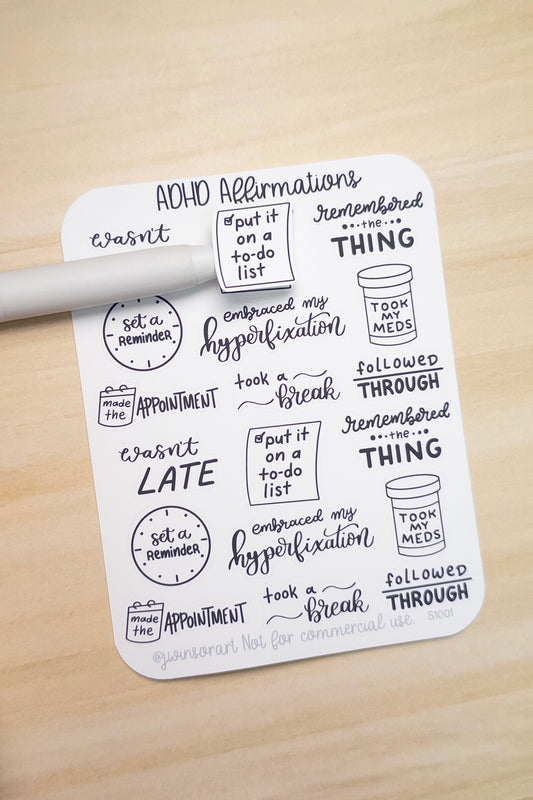 ADHD Affirmations
wasn't
put it
on a
to-do
list
remembered
the
THING
set a
reminder
embraced my
hyperfixation
TOOK
MY
MEDS
made
the
APPOINTMENT
took a
break
followed
THROUGH
wasn't
LATE
put it
on a
to-do
list
remembered
the
THING
set a
reminder
embraced my
hyperfixation
TOOK
MY
MEDS
made
the
APPOINTMENT
took a
break
followed
THROUGH
@jwinsorart Not for commercial use. S1001